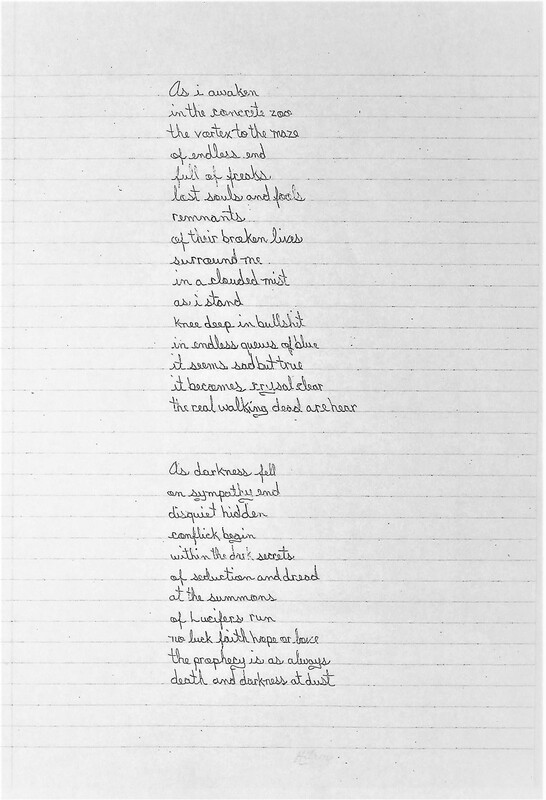 As i awaken
in the concrete zoo
the vortex to the maze
of endless end
full of freaks
lost souls and fools
remnants
of their broken lives
surround me
in a clouded mist
as i stand
knee deep in bullshit
in endless queues of blue
it seems sad but true
it becomes crysal clear
the real walking dead are hear
As darkness fell
on sympathy end
disquiet hidden
conflick begin
within the dark secrets
of seduction and dread
at the summons
of Lucifers run
no luck faith hope or love
the prophecy is as always
death and darkness at dust